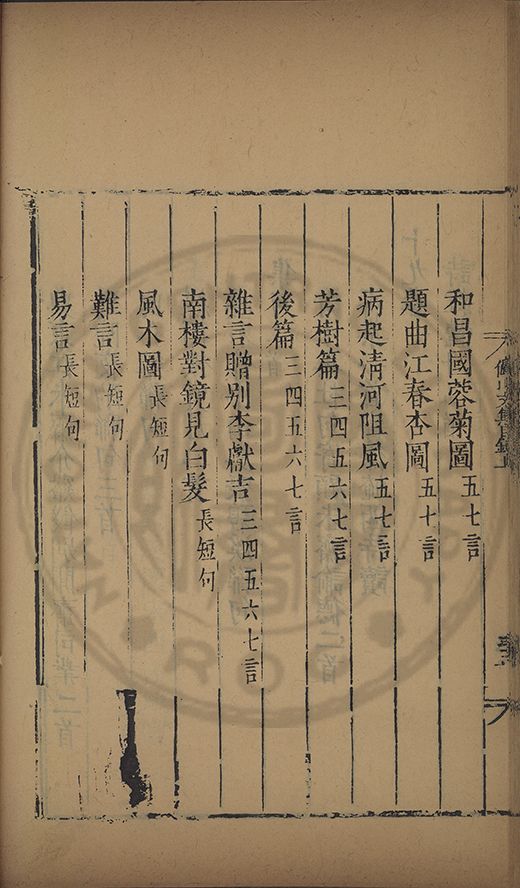 和昌國蓉菊圖 五七言
題曲江春杏圖 五七言
病起清河阻風 五七言
芳樹篇 三四五六七言
後篇 三四五六七言
雜言贈別李獻吉 三四五六七言
南樓對鏡見白髮 長短句
風木圖 長短句
難言 長短句
易言 長短句